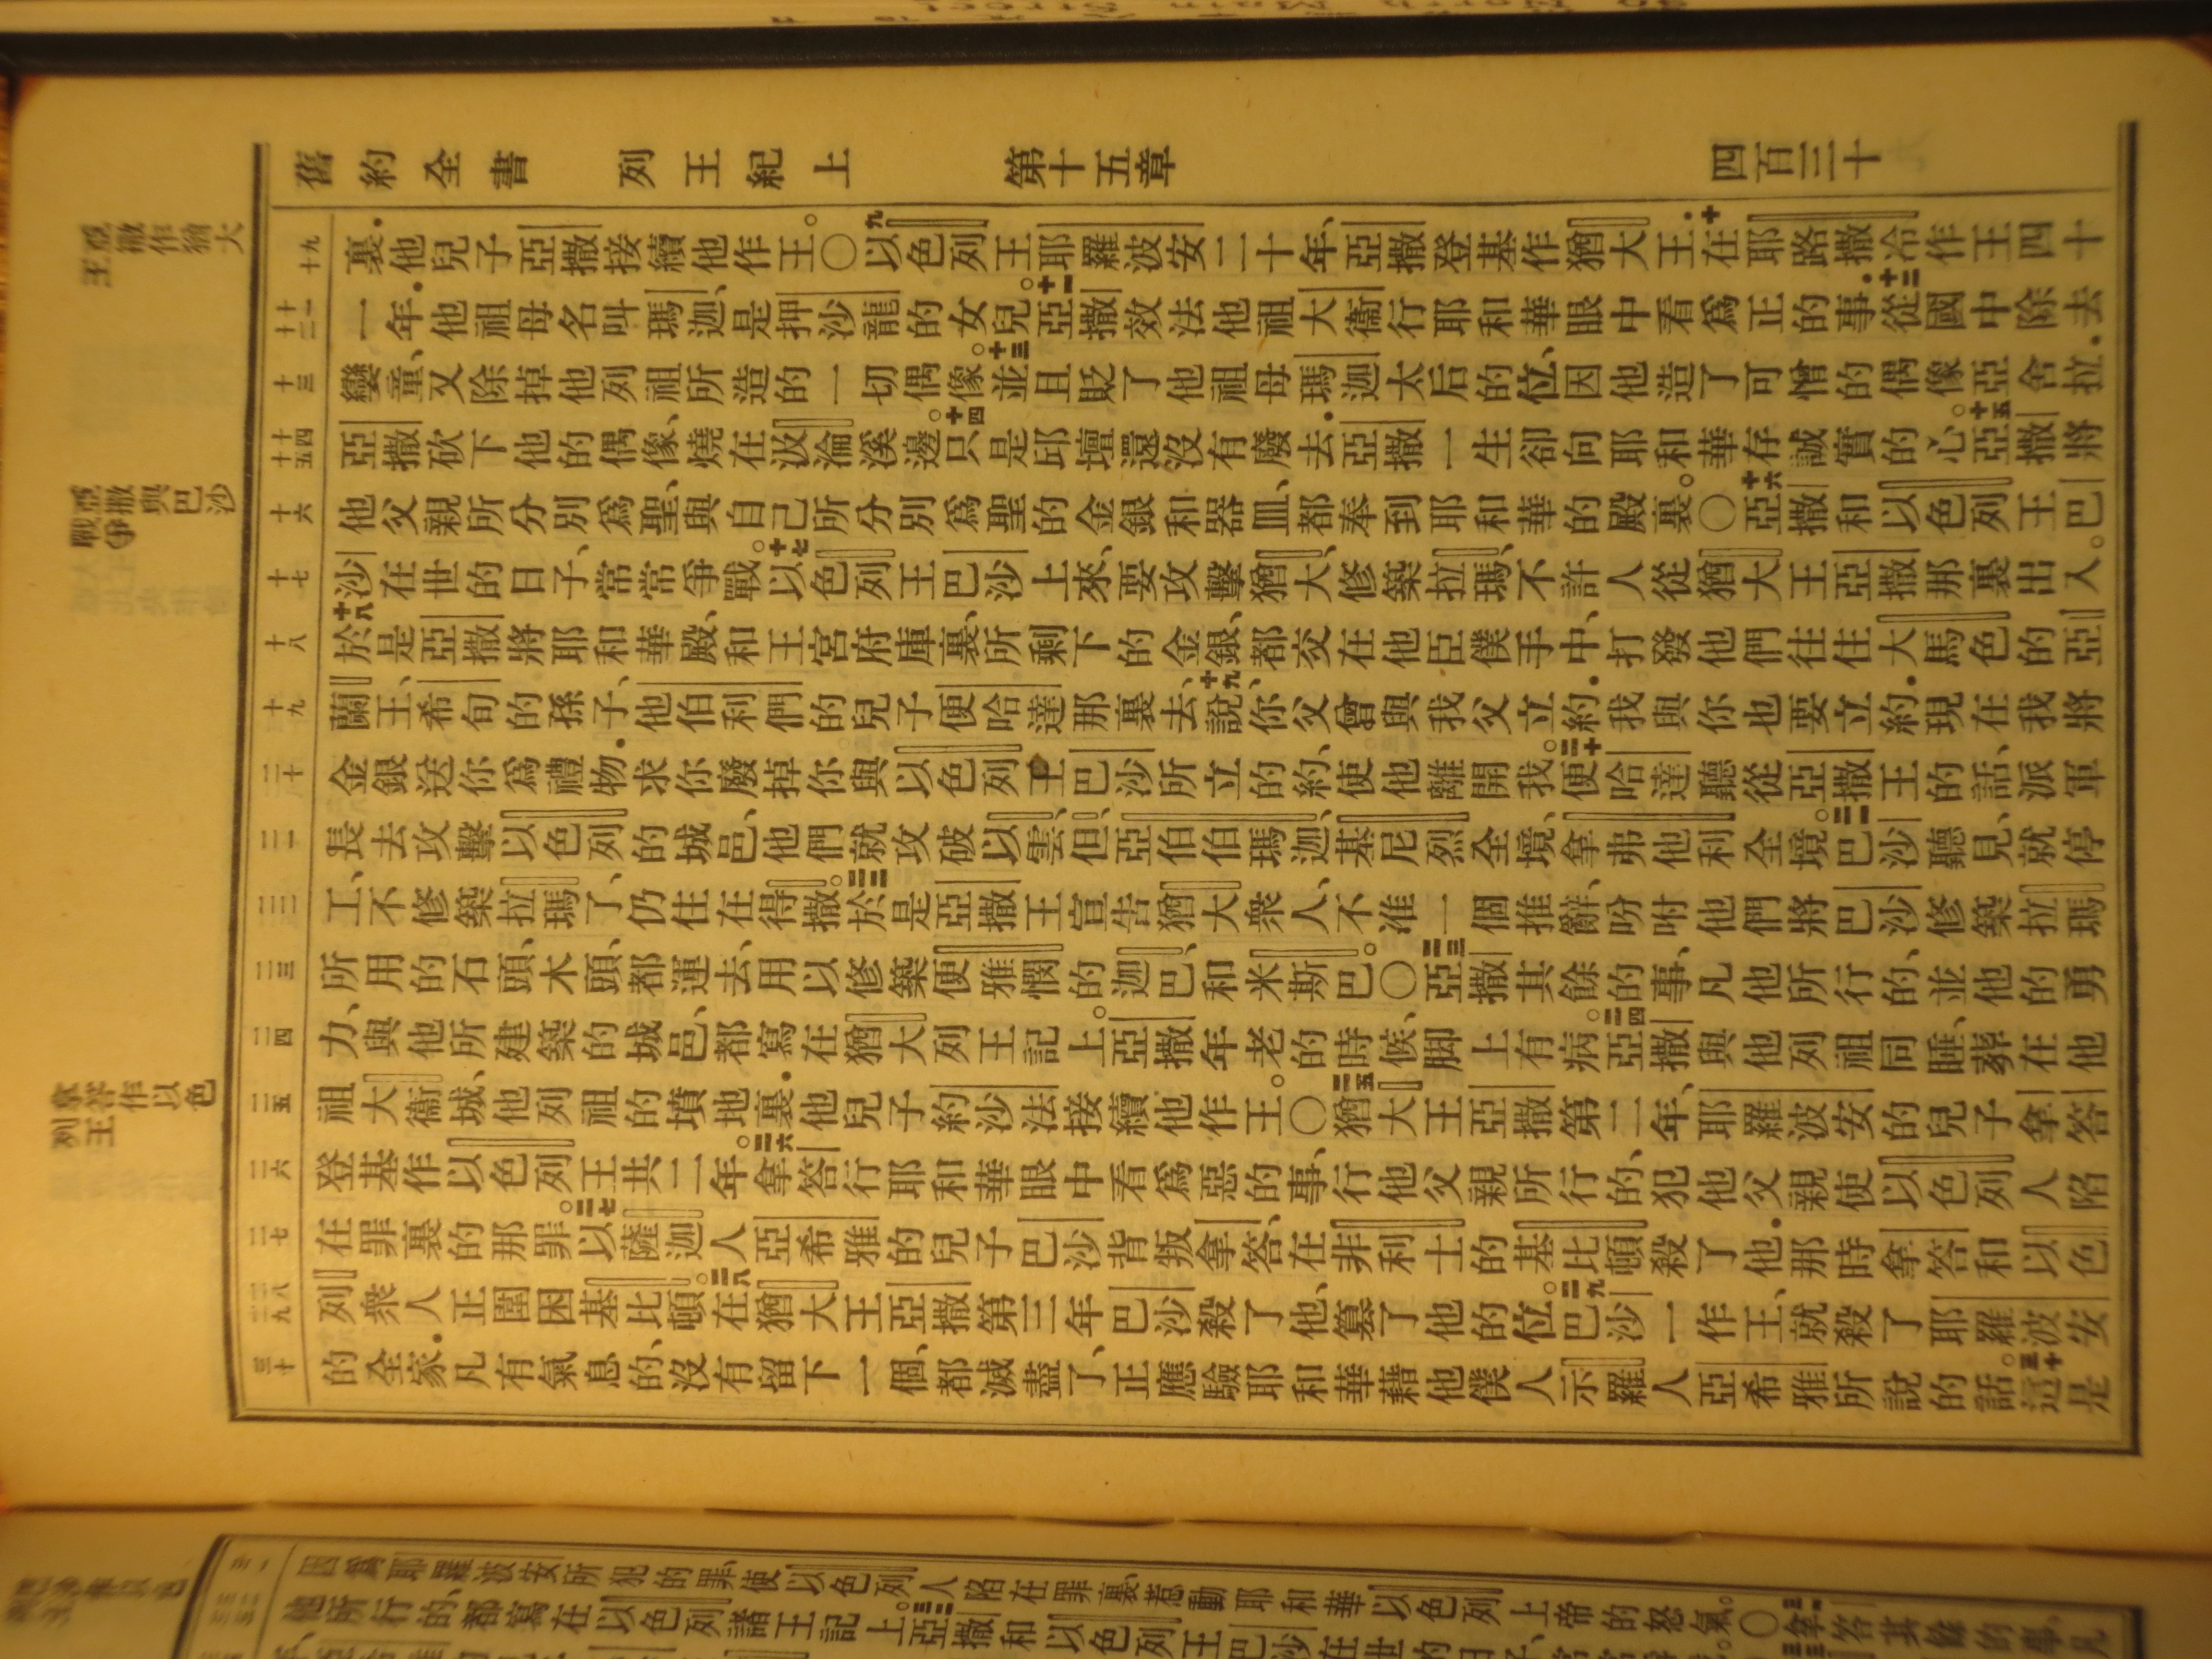 舊約全書 列王紀上 第十五章 四百三十
亞撒作猶大王
亞撒與巴沙爭戰
拿答作以色列王
十九
裏.他兒子亞撒接續他作王。〇九以色列王耶羅波安二十年、亞撒登基作猶大王.十在耶路撒冷作王四十
十一 十二
一年.他祖母名叫瑪迦、是押沙龍的女兒。十一亞撒效法他祖大衞、行耶和華眼中看爲正的事.十二從國中除去
十三
孌童、又除掉他列祖所造的一切偶像。十三並且貶了他祖母瑪迦太后的位、因他造了可憎的偶像亞舍拉.
十四 十五
亞撒砍下他的偶像、燒在汲淪溪邊。十四只是邱壇還沒有廢去.亞撒一生卻向耶和華存誠實的心。十五亞撒將
十六
他父親所分別爲聖、與自己所分別爲聖的金銀和器皿、都奉到耶和華的殿裏。〇十六亞撒和以色列王巴
十七
沙在世的日子、常常爭戰。十七以色列王巴沙上來、要攻擊猶大、修築拉瑪、不許人從猶大王亞撒那裏出入。
十八
十八於是亞撒將耶和華殿、和王宮府庫裏、所剩下的金銀、都交在他臣僕手中、打發他們往住大馬色的亞
十九
蘭王、希旬的孫子、他伯利們的兒子便哈達那裏去、十九說、你父曾與我父立約.我與你也要立約.現在我將
二十
金銀送你爲禮物.求你廢掉你與以色列王巴沙所立的約、使他離開我。二十便哈達聽從亞撒王的話、派軍
二一
長去攻擊以色列的城邑、他們就攻破以雲、但、亞伯伯瑪迦、基尼烈全境、拿弗他利全境。二一巴沙聽見、就停
二二
工、不修築拉瑪了、仍住在得撒。二二於是亞撒王宣告猶大衆人、不准一個推辭、吩咐他們將巴沙修築拉瑪
二三
所用的石頭、木頭、都運去、用以修築便雅憫的迦巴、和米斯巴。〇二三亞撒其餘的事、凡他所行的、並他的勇
二四
力、與他所建築的城邑、都寫在猶大列王記上。亞撒年老的時候、脚上有病。二四亞撒與他列祖同睡、葬在他
二五
祖大衞城、他列祖的墳地裏.他兒子約沙法接續他作王。〇二五猶大王亞撒第二年、耶羅波安的兒子拿答
二六
登基作以色列王共二年。二六拿答行耶和華眼中看爲惡的事、行他父親所行的、犯他父親使以色列人陷
二七
在罪裏的那罪。二七以薩迦人亞希雅的兒子巴沙背叛拿答、在非利士的基比頓殺了他.那時拿答和以色
二八 二九
列衆人正圍困基比頓。二八在猶大王亞撒第三年巴沙殺了他、篡了他的位。二九巴沙一作王、就殺了耶羅波安
三十
的全家.凡有氣息的、沒有留下一個、都滅盡了、正應驗耶和華藉他僕人示羅人亞希雅所說的話。三十這是
因爲耶羅波安所犯的罪、使以色列人陷在罪裏、惹動耶和華以色列上帝的怒氣。〇三一拿答其餘的事、凡
他所行的、都寫在以色列諸王記上。三二亞撒和以色列王巴沙在世的日子、